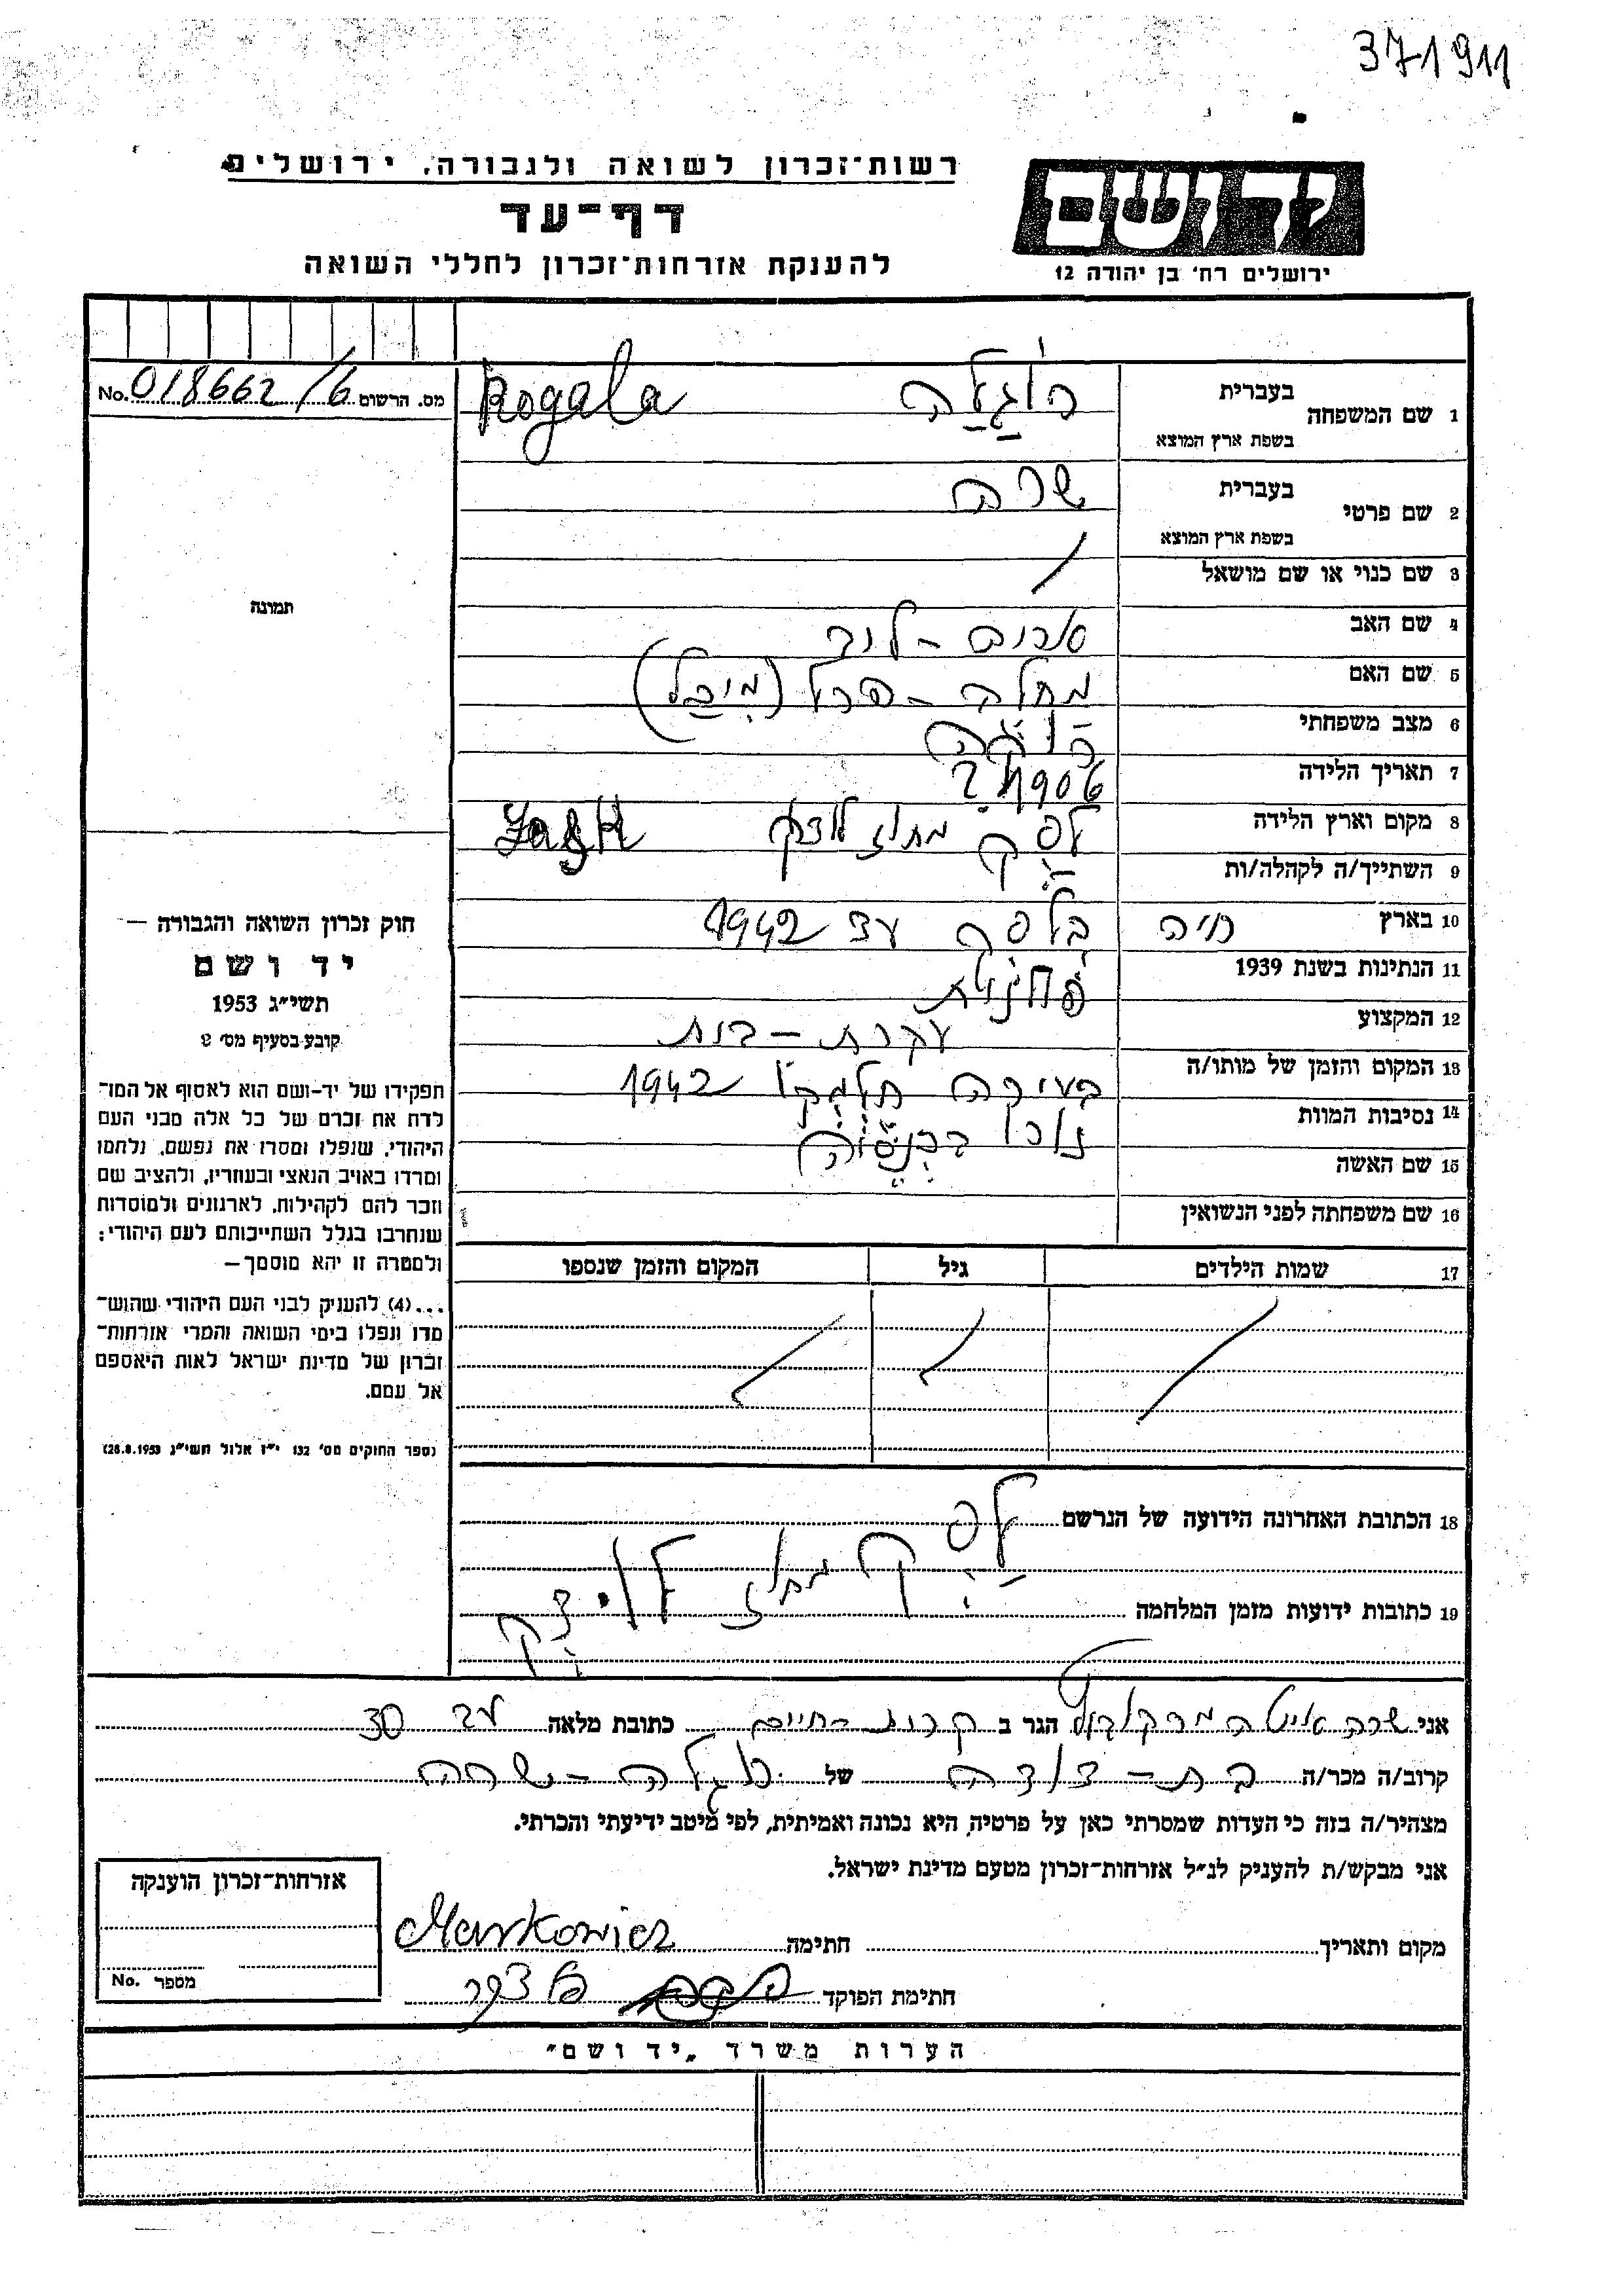 371911
רשות־זכרון לשואה ולגבורה. ירושלים
דף־עד
להענקת אזרחות־זכרון לחללי השואה
יד ושם
ירושלים רח' בן יהודה 12
מס. הרשום No. 018662/6
1 שם המשפחה בעברית רוגלה Rogala
בשפת ארץ המוצא
2 שם פרטי בעברית שרה
בשפת ארץ המוצא
3 שם כנוי או שם מושאל /
4 שם האב
5 שם האם מחלה - פרל (מיכל)
6 מצב משפחתי רווקה
7 תאריך הלידה 1906 ?
8 מקום וארץ הלידה לסק מחוז לודז' Łask
9 השתייך/ה לקהלה/ות
10 בארץ חיה בלסק עד 1942
11 הנתינות בשנת 1939 פולנית
12 המקצוע עקרת - בית
13 המקום והזמן של מותו/ה בעירה חלמנו 1942
14 נסיבות המוות
15 שם האשה
16 שם משפחתה לפני הנשואין
17 שמות הילדים גיל המקום והזמן שנספו
18 הכתובת האחרונה הידועה של הנרשם לסק מחוז לודז'
19 כתובות ידועות מזמן המלחמה
תמונה
חוק זכרון השואה והגבורה —
יד ושם
תשי״ג 1953
קובע בסעיף מס׳ 2
תפקידו של יד-ושם הוא לאסוף אל המו־
לדת את זכרם של כל אלה מבני העם
היהודי, שנפלו ומסרו את נפשם, נלחמו
ומרדו באויב הנאצי ובעוזריו, ולהציב שם
וזכר להם לקהילות, לארגונים ולמוסדות
שנחרבו בגלל השתייכותם לעם היהודי;
ולמטרה זו יהא מוסמך —
...(4) להעניק לבני העם היהודי שהוש־
מדו ונפלו בימי השואה והמרי אזרחות־
זכרון של מדינת ישראל לאות היאספם
אל עמם.
(ספר החוקים מס׳ 132 י״ז אלול תשי״ג 28.8.1953)
אני שרה הגר ב קרית - חיים כתובת מלאה 30
קרוב/ה מכר/ה בת - דודה של רוגלה - שרה
מצהיר/ה בזה כי העדות שמסרתי כאן על פרטיה, היא נכונה ואמיתית, לפי מיטב ידיעתי והכרתי.
אני מבקש/ת להעניק לנ״ל אזרחות־זכרון מטעם מדינת ישראל.
מקום ותאריך חתימה Markowicz
חתימת הפוקד
אזרחות־זכרון הוענקה
מספר No.
הערות משרד „יד ושם״